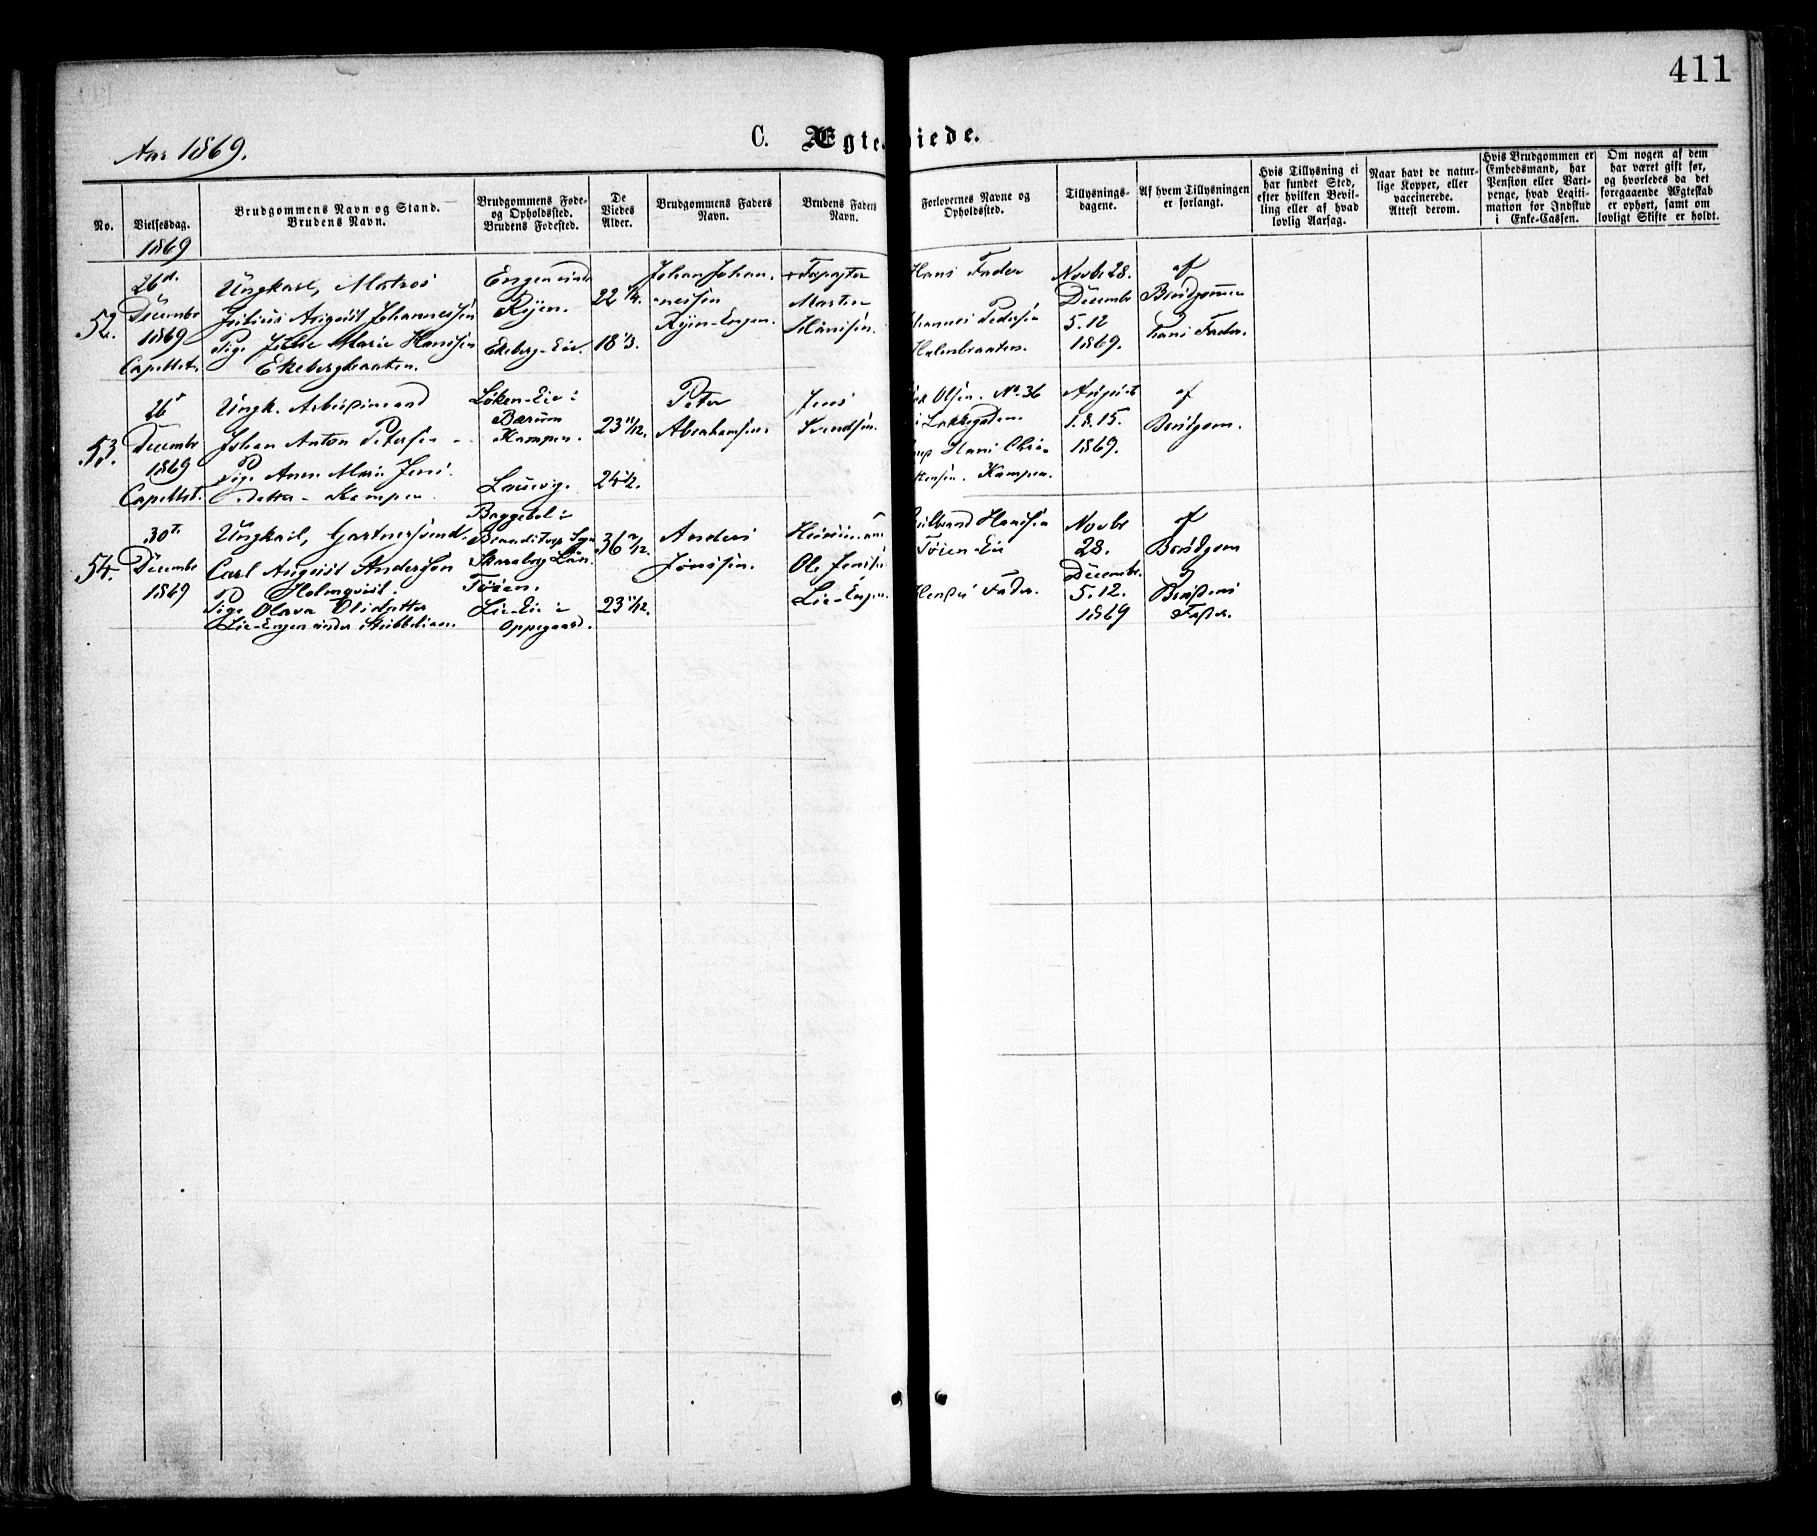 411
Aar 1869.
C. Ægteviede.
No.
Vielsesdag.
1869
Brudgommens Navn og Stand.
Brudens Navn.
Brudgommens Føde-
og Opholdssted.
Brudens Fødested.
De
Viedes
Alder.
Brudgommens Faders
Navn.
Brudens Faders
Navn.
Forlovernes Navne og
Opholdssted.
Tillysnings-
dagene.
Af hvem Tillysningen
er forlangt.
Hvis Tillysning ei
har fundet Sted,
efter hvilken Bevil-
ling eller af hvad
lovlig Aarsag.
Naar havt de natur-
lige Kopper, eller
vaccinerede.
Attest derom.
Hvis Brudgommen er
Embedsmand, har
Pension eller Vart-
penge, hvad Legiti-
mation for Indskud
i Enke-Cassen.
Om nogen af dem
har været gift før,
og hvorledes da det
foregaaende Ægteskab
er ophørt, samt om
lovligt Skifte er holdt.
52.
26d
Decembr
1869
Capellet.
Ungkarl, Matros
Julius August Johannessen
Pige Marie Hansen
Ekebergbraaten.
Engen under
Ryen.
Ekeberg-Eie.
22 1/4.
18 1/3.
Johan Johan-
nessen
Ryen-Engen.
Morten
Hansen.
Hans Fader
hannes Pedersen
Holmbraaten.
Novbr 28.
Decembr
5.12
1869.
af
Brudgommen
hans Fader.
53.
26
Decembr
1869
Capellet.
Ungk. Arbeidsmand
Johan Anton Petersen
Pige Anne Marie Jens
datter - Kampen
Løken-Eie i
Bærum
Kampen.
Laurvig.
23 11/12.
24 1/2.
Peter
Abrahamsen.
Jens
Svendsen.
Olsen. No. 36
i Lakkegaden.
Hans Chri-
stensen. Kampen.
August
1.8.15.
1869.
af
Brudgom.
54.
30te
Decembr
1869
Ungkarl, Gartnersvend
Carl August Anderson
Holmqvist.
Pige Olava Olsdatter
Lie-Engen under Stubbelian.
Baggebol i
Skaraborg Län.
Tøien.
Lie-Eie i
Oppegaard.
23 11/12.
Anders
Jønssen.
Ole Jensen
Lie-Engen
ulbrand Hansen
Tøien-Eie
Hendes Fader.
Novbr
28.
Decembr.
5.12.
1869
af
Brudgom
og
Brudens
Fader.